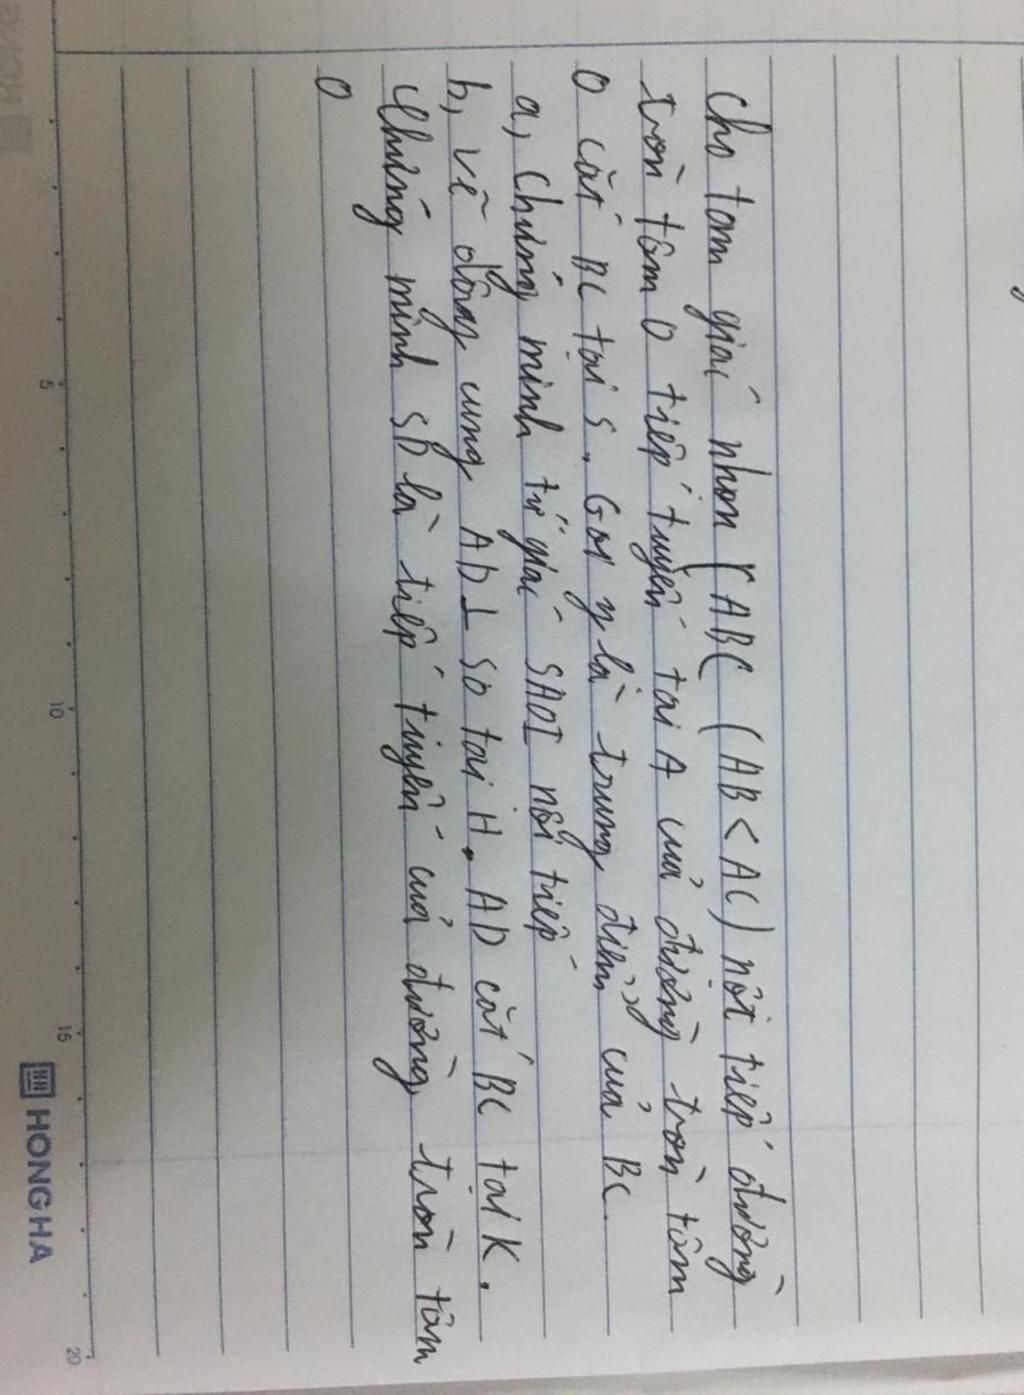 Cho tam giác nhọn (ABC (AB < AC) nội tiếp đường
tròn tâm O tiếp tuyến tại A của đường tròn tâm
O cắt BC tại S. Gọi I là trung điểm của BC.
a, Chứng minh tứ giác SAOI nội tiếp
b, vẽ dây cung AD ⊥ SO tại H. AD cắt BC tại K.
Chứng minh SD là tiếp tuyến của đường tròn tâm
O
5
10
15
20
HONG HA